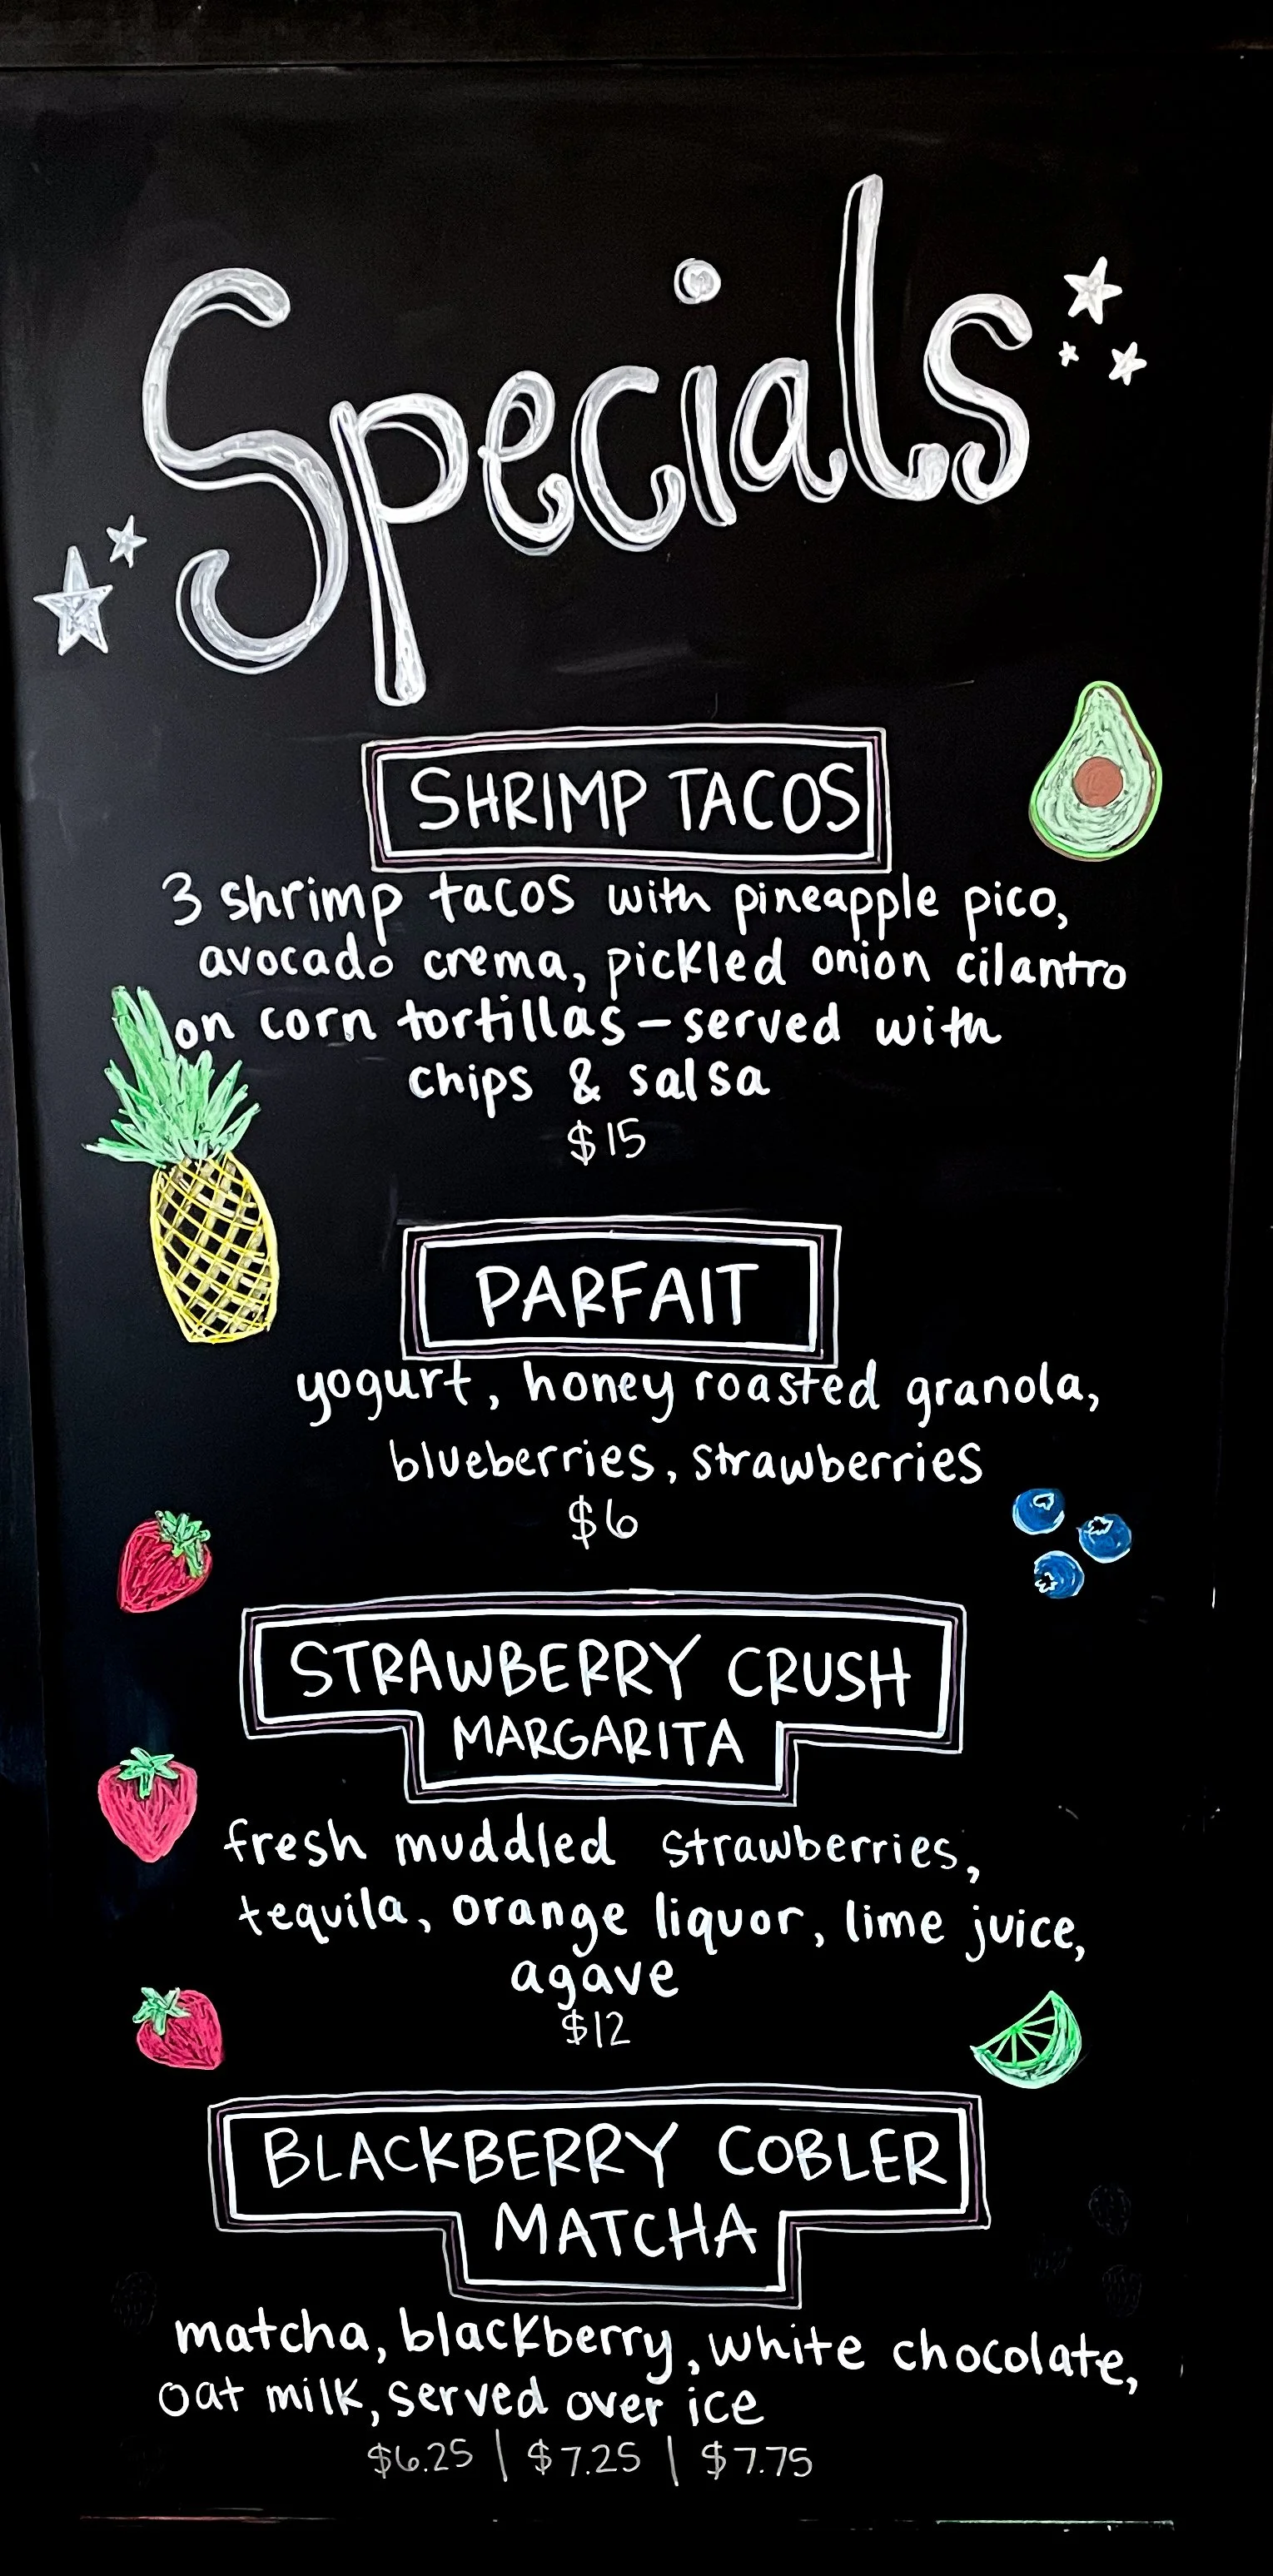 Specials
SHRIMP TACOS
3 shrimp tacos with pineapple pico,
avocado crema, pickled onion cilantro
on corn tortillas – served with
chips & salsa
$15
PARFAIT
yogurt, honey roasted granola,
blueberries, strawberries
$6
STRAWBERRY CRUSH
MARGARITA
fresh muddled strawberries,
tequila, orange liquor, lime juice,
agave
$12
BLACKBERRY COBLER
MATCHA
matcha, blackberry, white chocolate,
oat milk, served over ice
$6.25 | $7.25 | $7.75